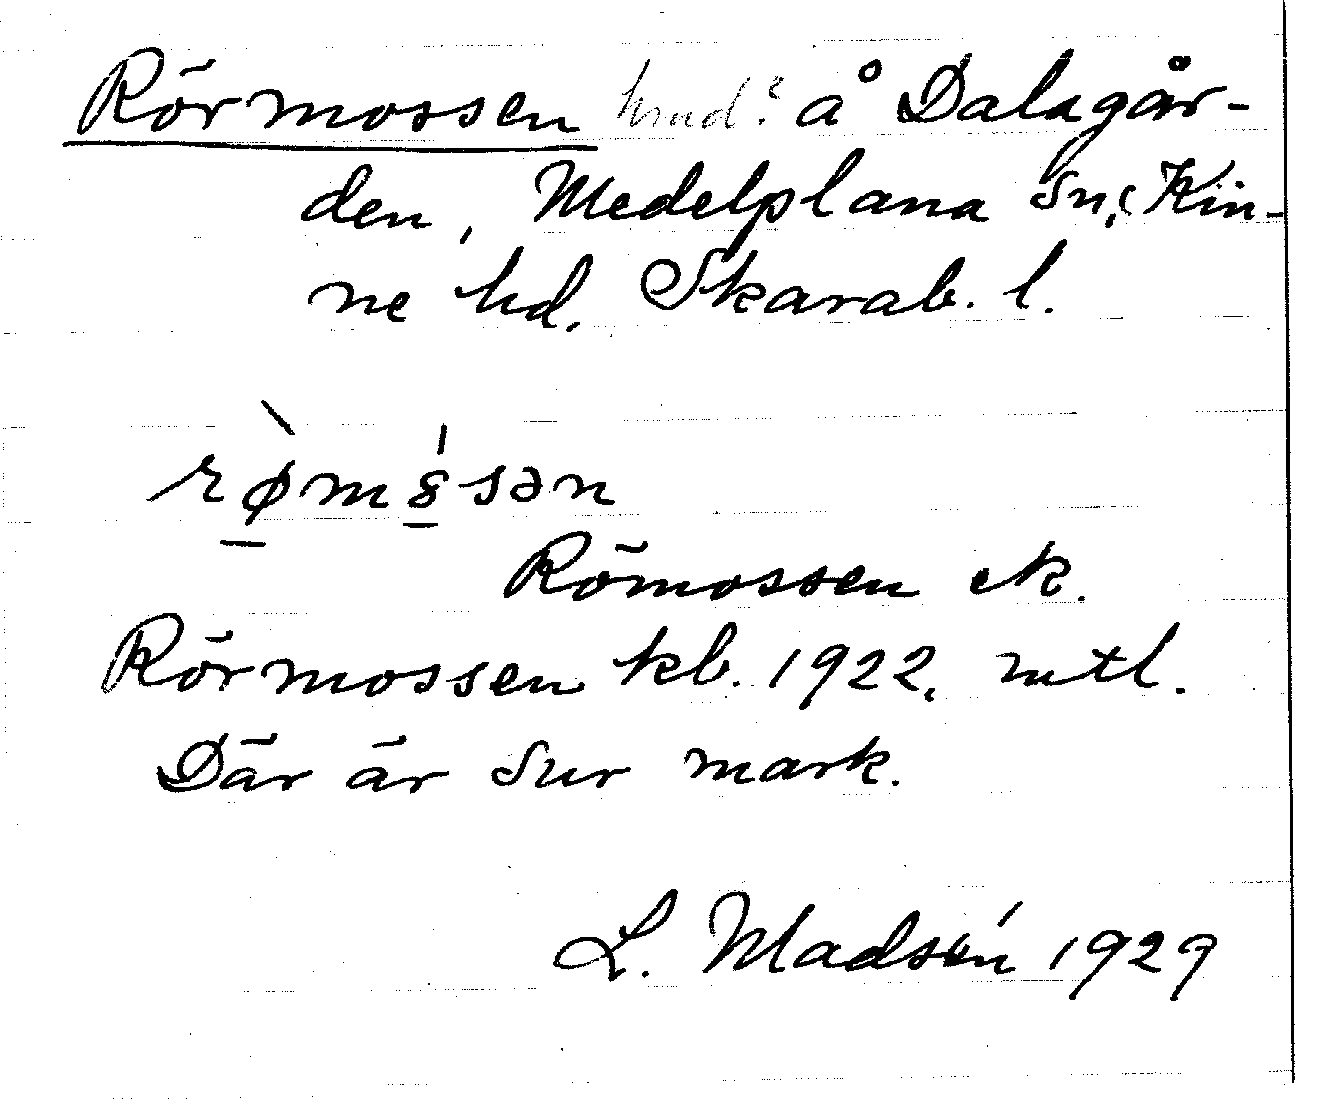 Rörmossen hmd? å Dalagår-
den, Medelplana sn, Kin-
ne hd. Skarab. l.
rø̠̀mo̠̍sən
Römossen ek.
Rörmossen kb. 1922. mtl.
Där är sur mark.
L. Madsén 1929